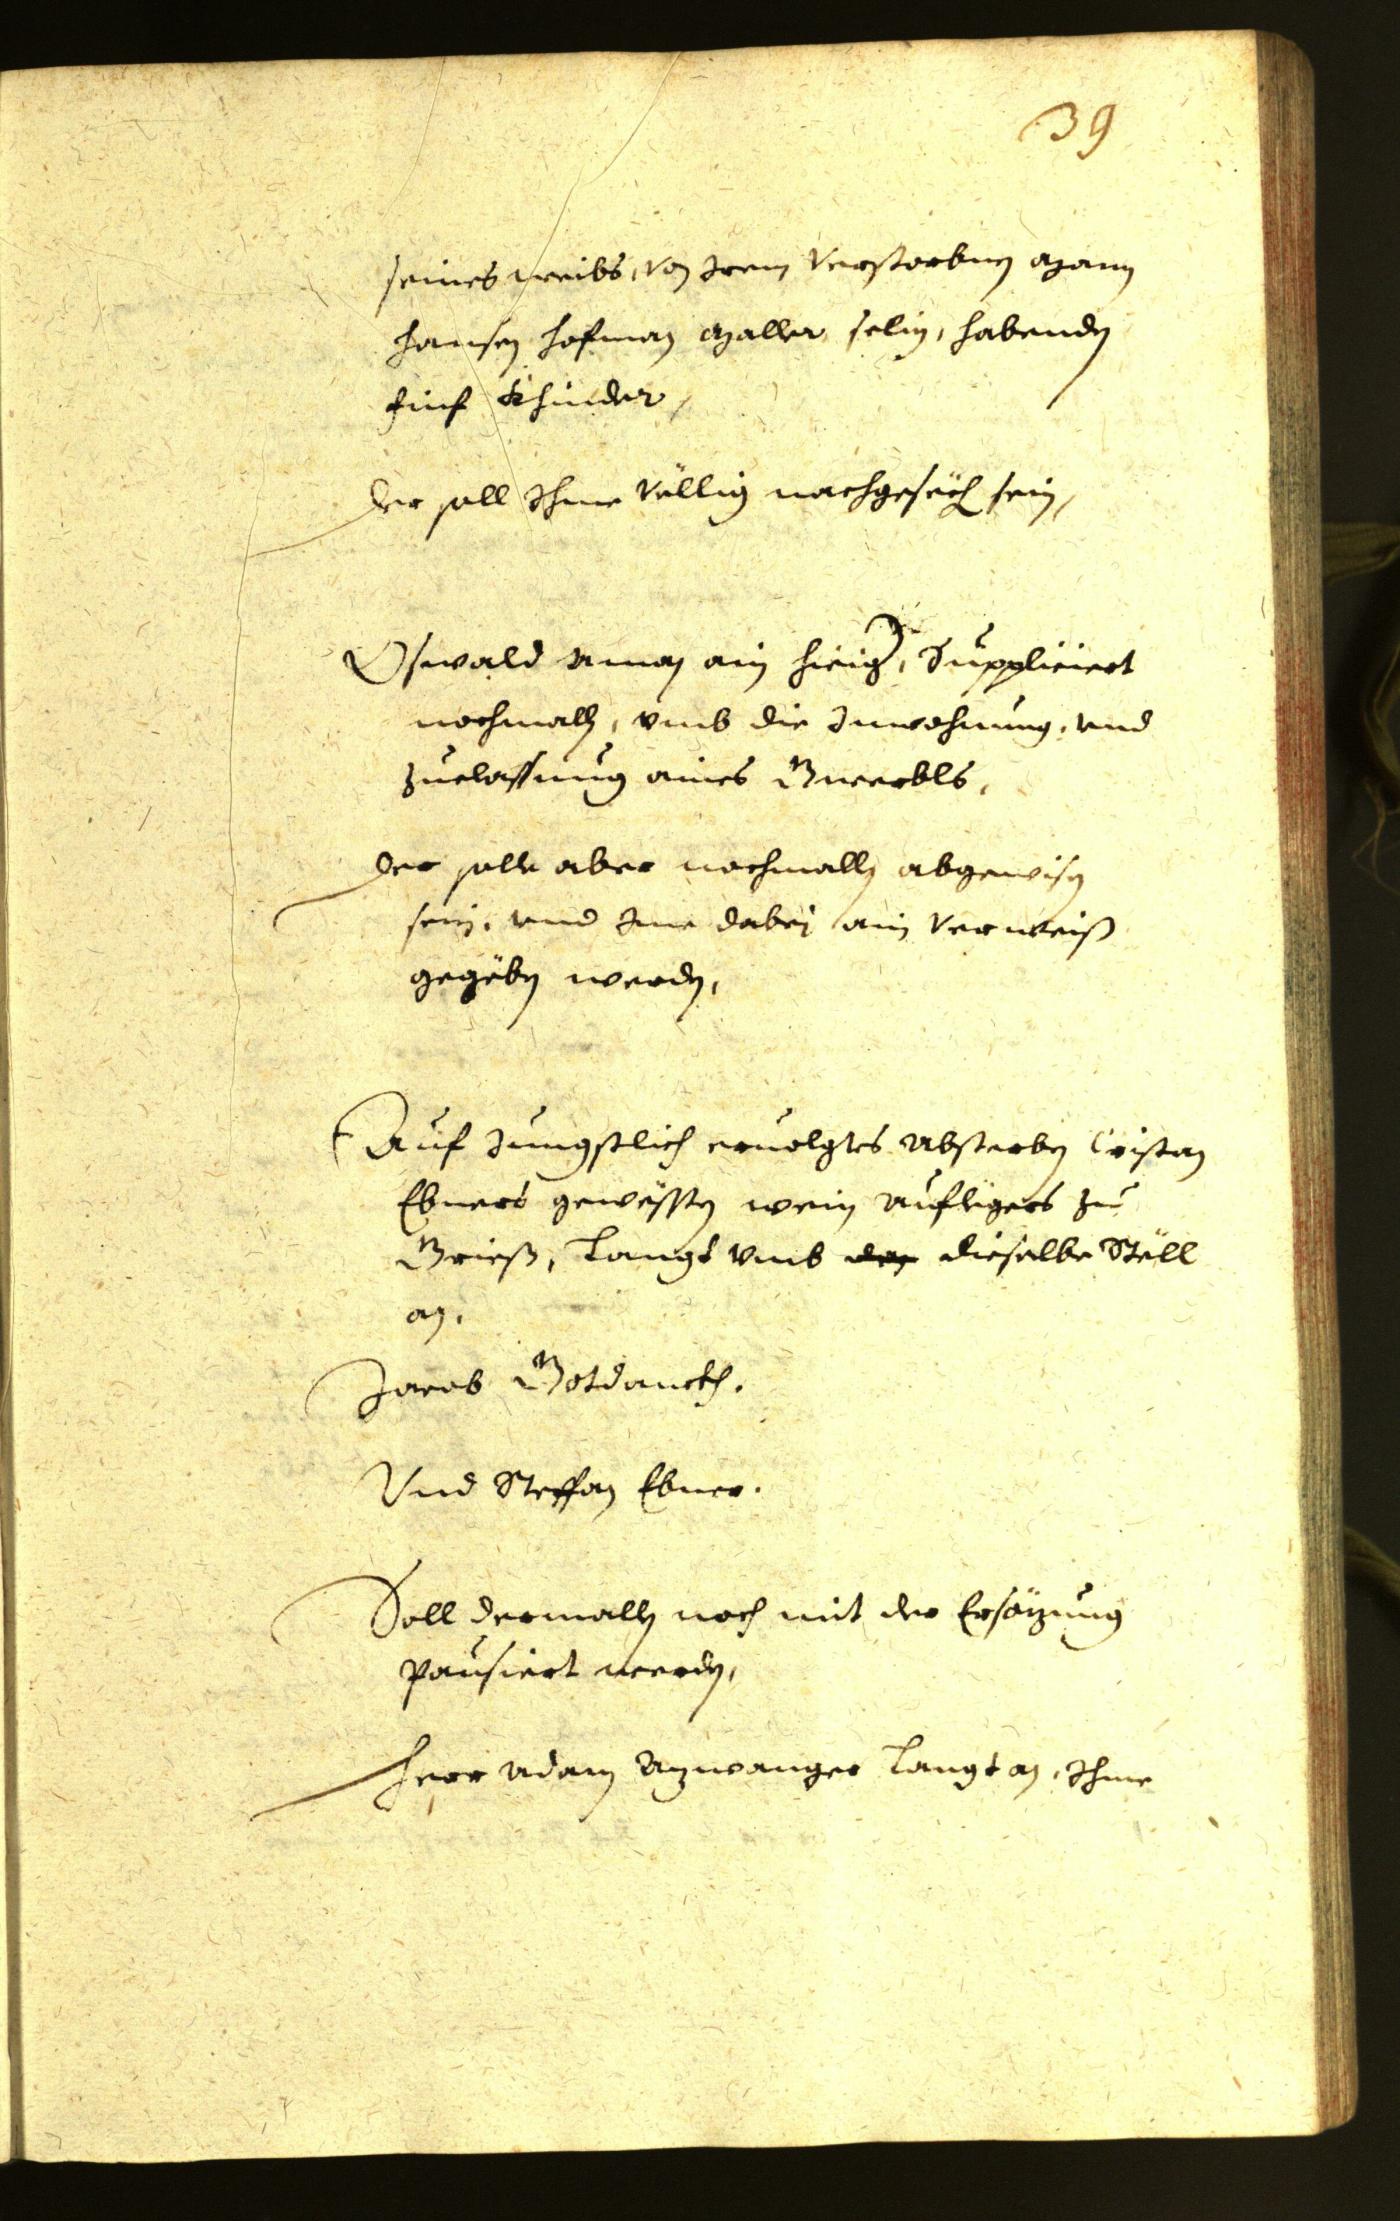 39
seines weibs, von Irem verstorbnen Mann
Hansen Hofman Maller selig, habenden
fünf Khinder,
der soll Ihme völlig nachgesöch sein,
Oswald Aman ain hieig, Suppliciert
nochmalls, vmb die Inwohnung, vnd
Zuelassung aines Gwerbls,
der solle aber nochmalls abgewisen
sein, vnd Ime dabei ain Verweiß
gegeben werden,
Auf Jungstlich ervolgtes Absterben Cristan
Ebners gewesten wein Auflegers zu
Grieß, langt vmb den dieselbe Stöll
an.
Jacob Gotdanckh.
Vnd Steffan Ebner.
Soll dermalls noch mit der Ersözung
Pausiert werden,
Herr Adam Azwanger langt an, Ihme